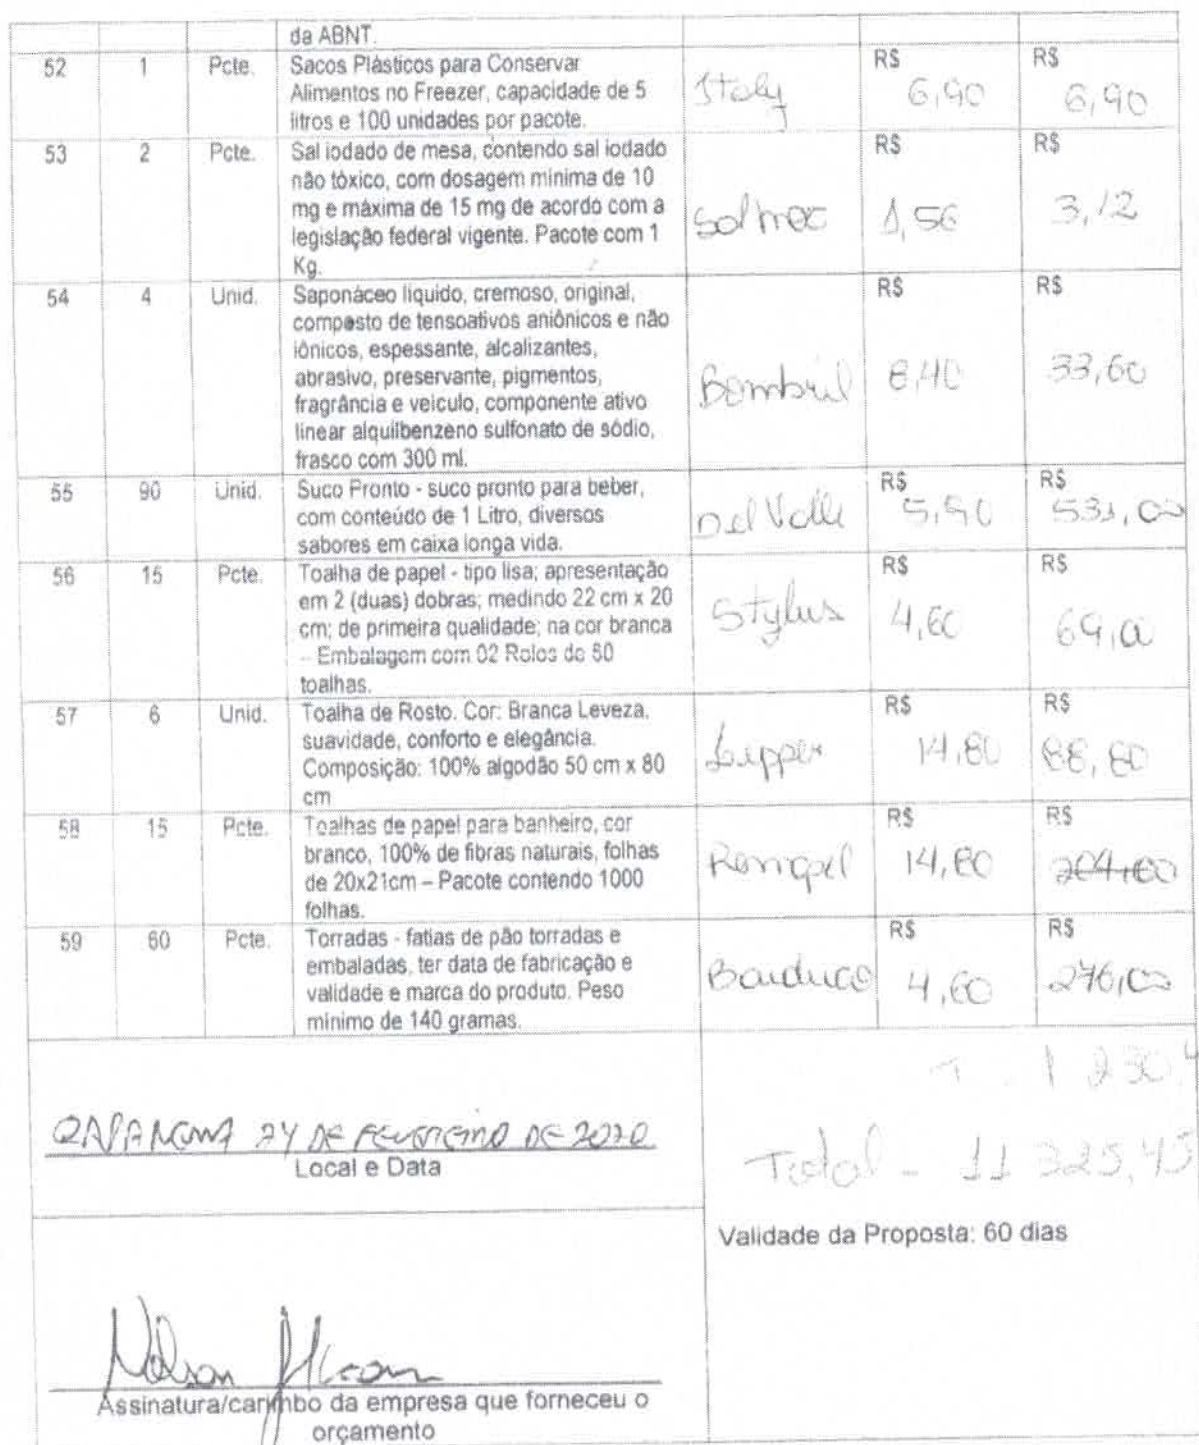 da ABNT.
52 1 Pcte. Sacos Plásticos para Conservar
Alimentos no Freezer, capacidade de 5
litros e 100 unidades por pacote.
Italy R$ 6,90 R$ 6,90
53 2 Pcte. Sal iodado de mesa, contendo sal iodado
não tóxico, com dosagem mínima de 10
mg e máxima de 15 mg de acordo com a
legislação federal vigente. Pacote com 1
Kg.
R$ 1,56 R$ 3,12
54 4 Unid. Saponáceo líquido, cremoso, original,
composto de tensoativos aniônicos e não
iônicos, espessante, alcalizantes,
abrasivo, preservante, pigmentos,
fragrância e veículo, componente ativo
linear alquilbenzeno sulfonato de sódio,
frasco com 300 ml.
Bombril R$ 8,40 R$ 33,60
55 90 Unid. Suco Pronto - suco pronto para beber,
com conteúdo de 1 Litro, diversos
sabores em caixa longa vida.
Del Valle R$ 5,90 R$ 531,00
56 15 Pcte. Toalha de papel - tipo lisa; apresentação
em 2 (duas) dobras; medindo 22 cm x 20
cm; de primeira qualidade; na cor branca
– Embalagem com 02 Rolos de 50
toalhas.
Stylus R$ 4,60 R$ 69,00
57 6 Unid. Toalha de Rosto. Cor: Branca Leveza,
suavidade, conforto e elegância.
Composição: 100% algodão 50 cm x 80
cm
Lepper R$ 14,80 R$ 88,80
58 15 Pcte. Toalhas de papel para banheiro, cor
branco, 100% de fibras naturais, folhas
de 20x21cm – Pacote contendo 1000
folhas.
R$ 14,80 R$
59 60 Pcte. Torradas - fatias de pão torradas e
embaladas, ter data de fabricação e
validade e marca do produto. Peso
mínimo de 140 gramas.
Bauduco R$ 4,60 R$ 276,00
24 DE FEVEREIRO DE 2020
Local e Data
Total - 11 325,45
Validade da Proposta: 60 dias
Assinatura/carimbo da empresa que forneceu o
orçamento